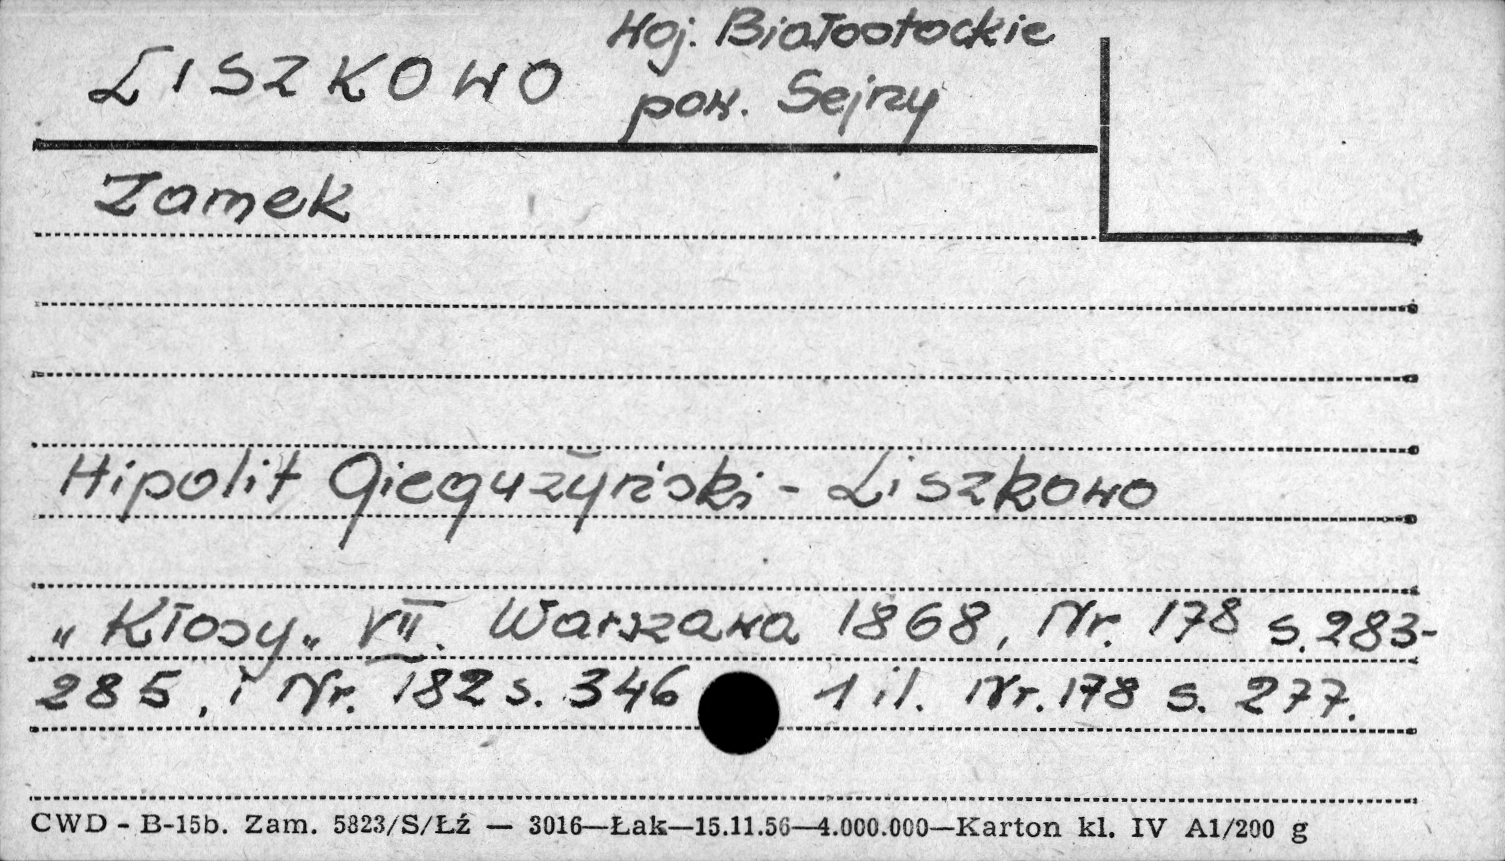 LISZKOWO
Woj. Białostockie
pow. Sejny
Zamek
Hipolit - Liszkowo
„Kłosy„ VII. Warszawa 1868, Nr. 178 s. 283-
285, i Nr. 182 s. 346 1 il. Nr. 178 s. 277.
CWD - B-15b. Zam. 5823/S/Łź — 3016—Łak—15.11.56—4.000.000—Karton kl. IV A1/200 g